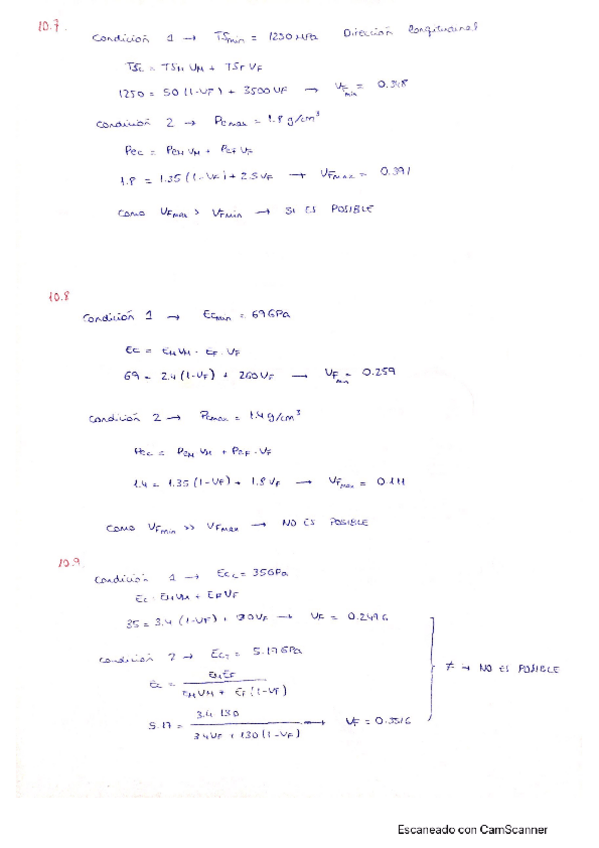 10.7.
Condición 1 → TSmin = 1250 MPa Dirección longitudinal
TSc = TSM VM + TSF VF
1250 = 50 (1-VF) + 3500 VF → VFmin = 0.348
Condición 2 → ρcmax = 1.8 g/cm³
ρec = ρeM VM + ρeF VF
1.8 = 1.35 (1-VF) + 2.5 VF → VFMAX = 0.391
Como VFmax > VFmin → SI ES POSIBLE
10.8
Condición 1 → Ecmin = 69 GPa
Ec = EM VM + EF. VF
69 = 2.4 (1-VF) + 260 VF → VFmin = 0.259
Condición 2 → ρcmax = 1.4 g/cm³
ρec = ρeM VM + ρeF . VF
1.4 = 1.35 (1-VF) + 1.8 VF → VFmax = 0.111
Como VFmin >> VFmax → NO ES POSIBLE
10.9.
Condición 1 → Ecc = 35 GPa
Ec = EM VM + EF VF
35 = 3.4 (1-VF) + 130 VF → VF = 0.2496
Condición 2 → EcT = 5.17 GPa
Ec = EM EF
EM VM + EF (1-VF)
≠ → NO ES POSIBLE
5.17 = 3.4 130
3.4 VF + 130 (1-VF) → VF = 0.3516
Escaneado con CamScanner